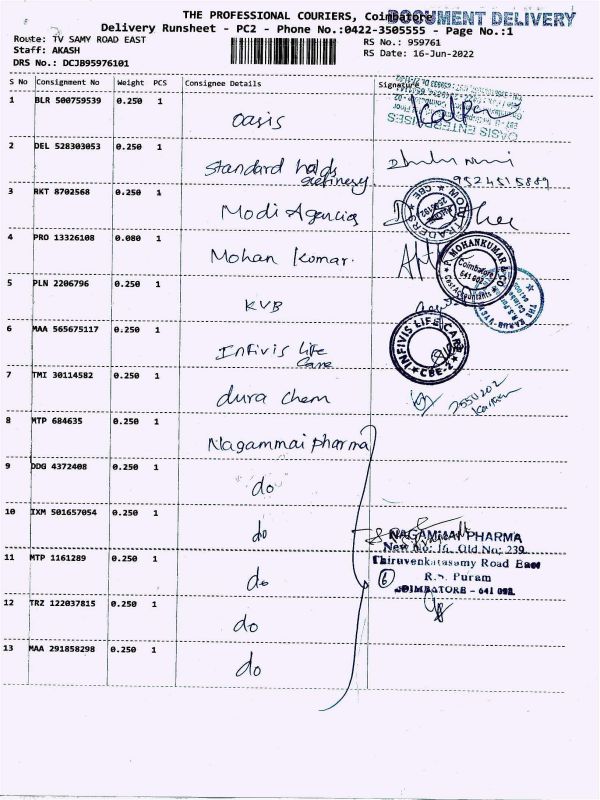 THE PROFESSIONAL COURIERS, Coimbatore
DOCUMENT DELIVERY
Delivery Runsheet - PC2 - Phone No.:0422-3505555 - Page No.:1
Route: TV SAMY ROAD EAST
RS No.: 959761
Staff: AKASH
RS Date: 16-Jun-2022
DRS No.: DCJB95976101
S No Consignment No Weight PCS Consignee Details Signature
1 BLR 500759539 0.250 1 Oasis
OASIS ENTERPRISES
2 DEL 528303053 0.250 1
Standard holds
9524515889
3 RKT 8702568 0.250 1 Modi Agencies
TRADERS CBE
4 PRO 13326108 0.080 1 Mohan Kumar.
P. MOHANKUMAR & CO
Coimbatore
641 002
Cost Accountants
5 PLN 2206796 0.250 1 KVB
6 MAA 565675117 0.250 1 Infivis Life
Care
INFIVIS LIFE CARE
CBE-2
7 TMI 30114582 0.250 1 dura Chem
8 MTP 684635 0.250 1 Nagammai pharma
9 DDG 4372408 0.250 1 do
10 IXM 501657054 0.250 1 do
NAGAMMAI PHARMA
New No: 16, Old No: 239,
11 MTP 1161289 0.250 1 do
Thiruvenkatasamy Road East
R.S. Puram
6
COIMBATORE - 641 002.
12 TRZ 122037815 0.250 1 do
13 MAA 291858298 0.250 1 do